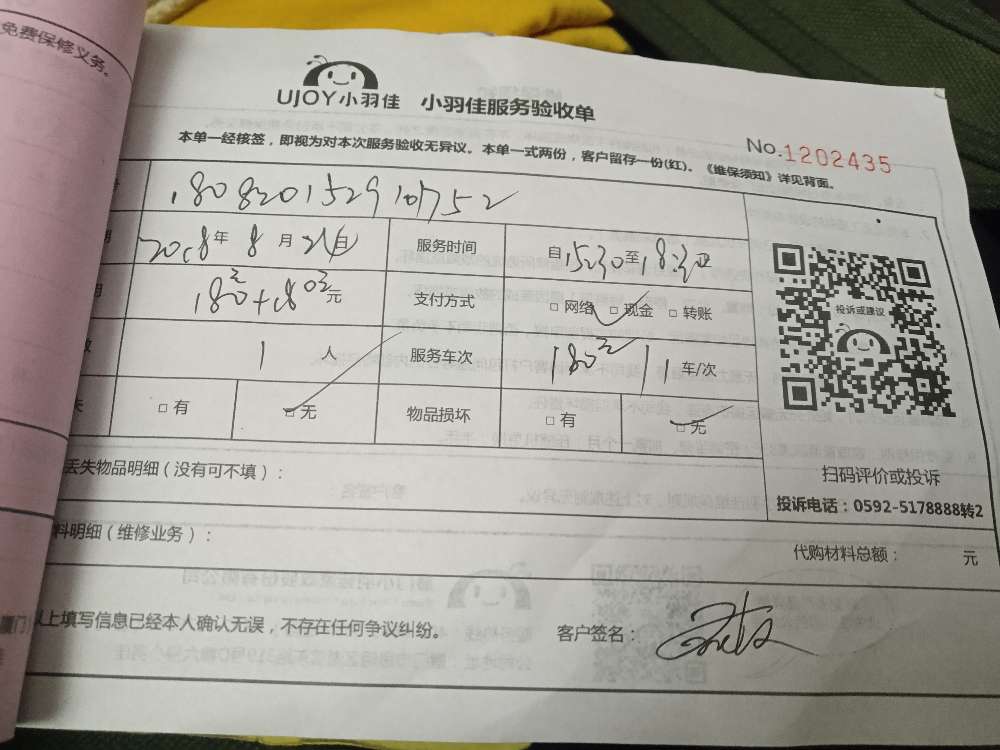 免费保修义务。
UJOY小羽佳 小羽佳服务验收单
No.1202435
本单一经核签，即视为对本次服务验收无异议。本单一式两份，客户留存一份(红)。《维保须知》详见背面。
2018年 8 月 21日 服务时间 自15:30至18:30
180元+180元元 支付方式 □ 网络 □ 现金 □ 转账
1 人 服务车次 车/次
□ 有 □ 无 物品损坏 □ 有 □ 无
投诉或建议
扫码评价或投诉
投诉电话：0592-5178888转2
丢失物品明细（没有可不填）：
料明细（维修业务）：
代购材料总额： 元
以上填写信息已经本人确认无误，不存在任何争议纠纷。 客户签名：